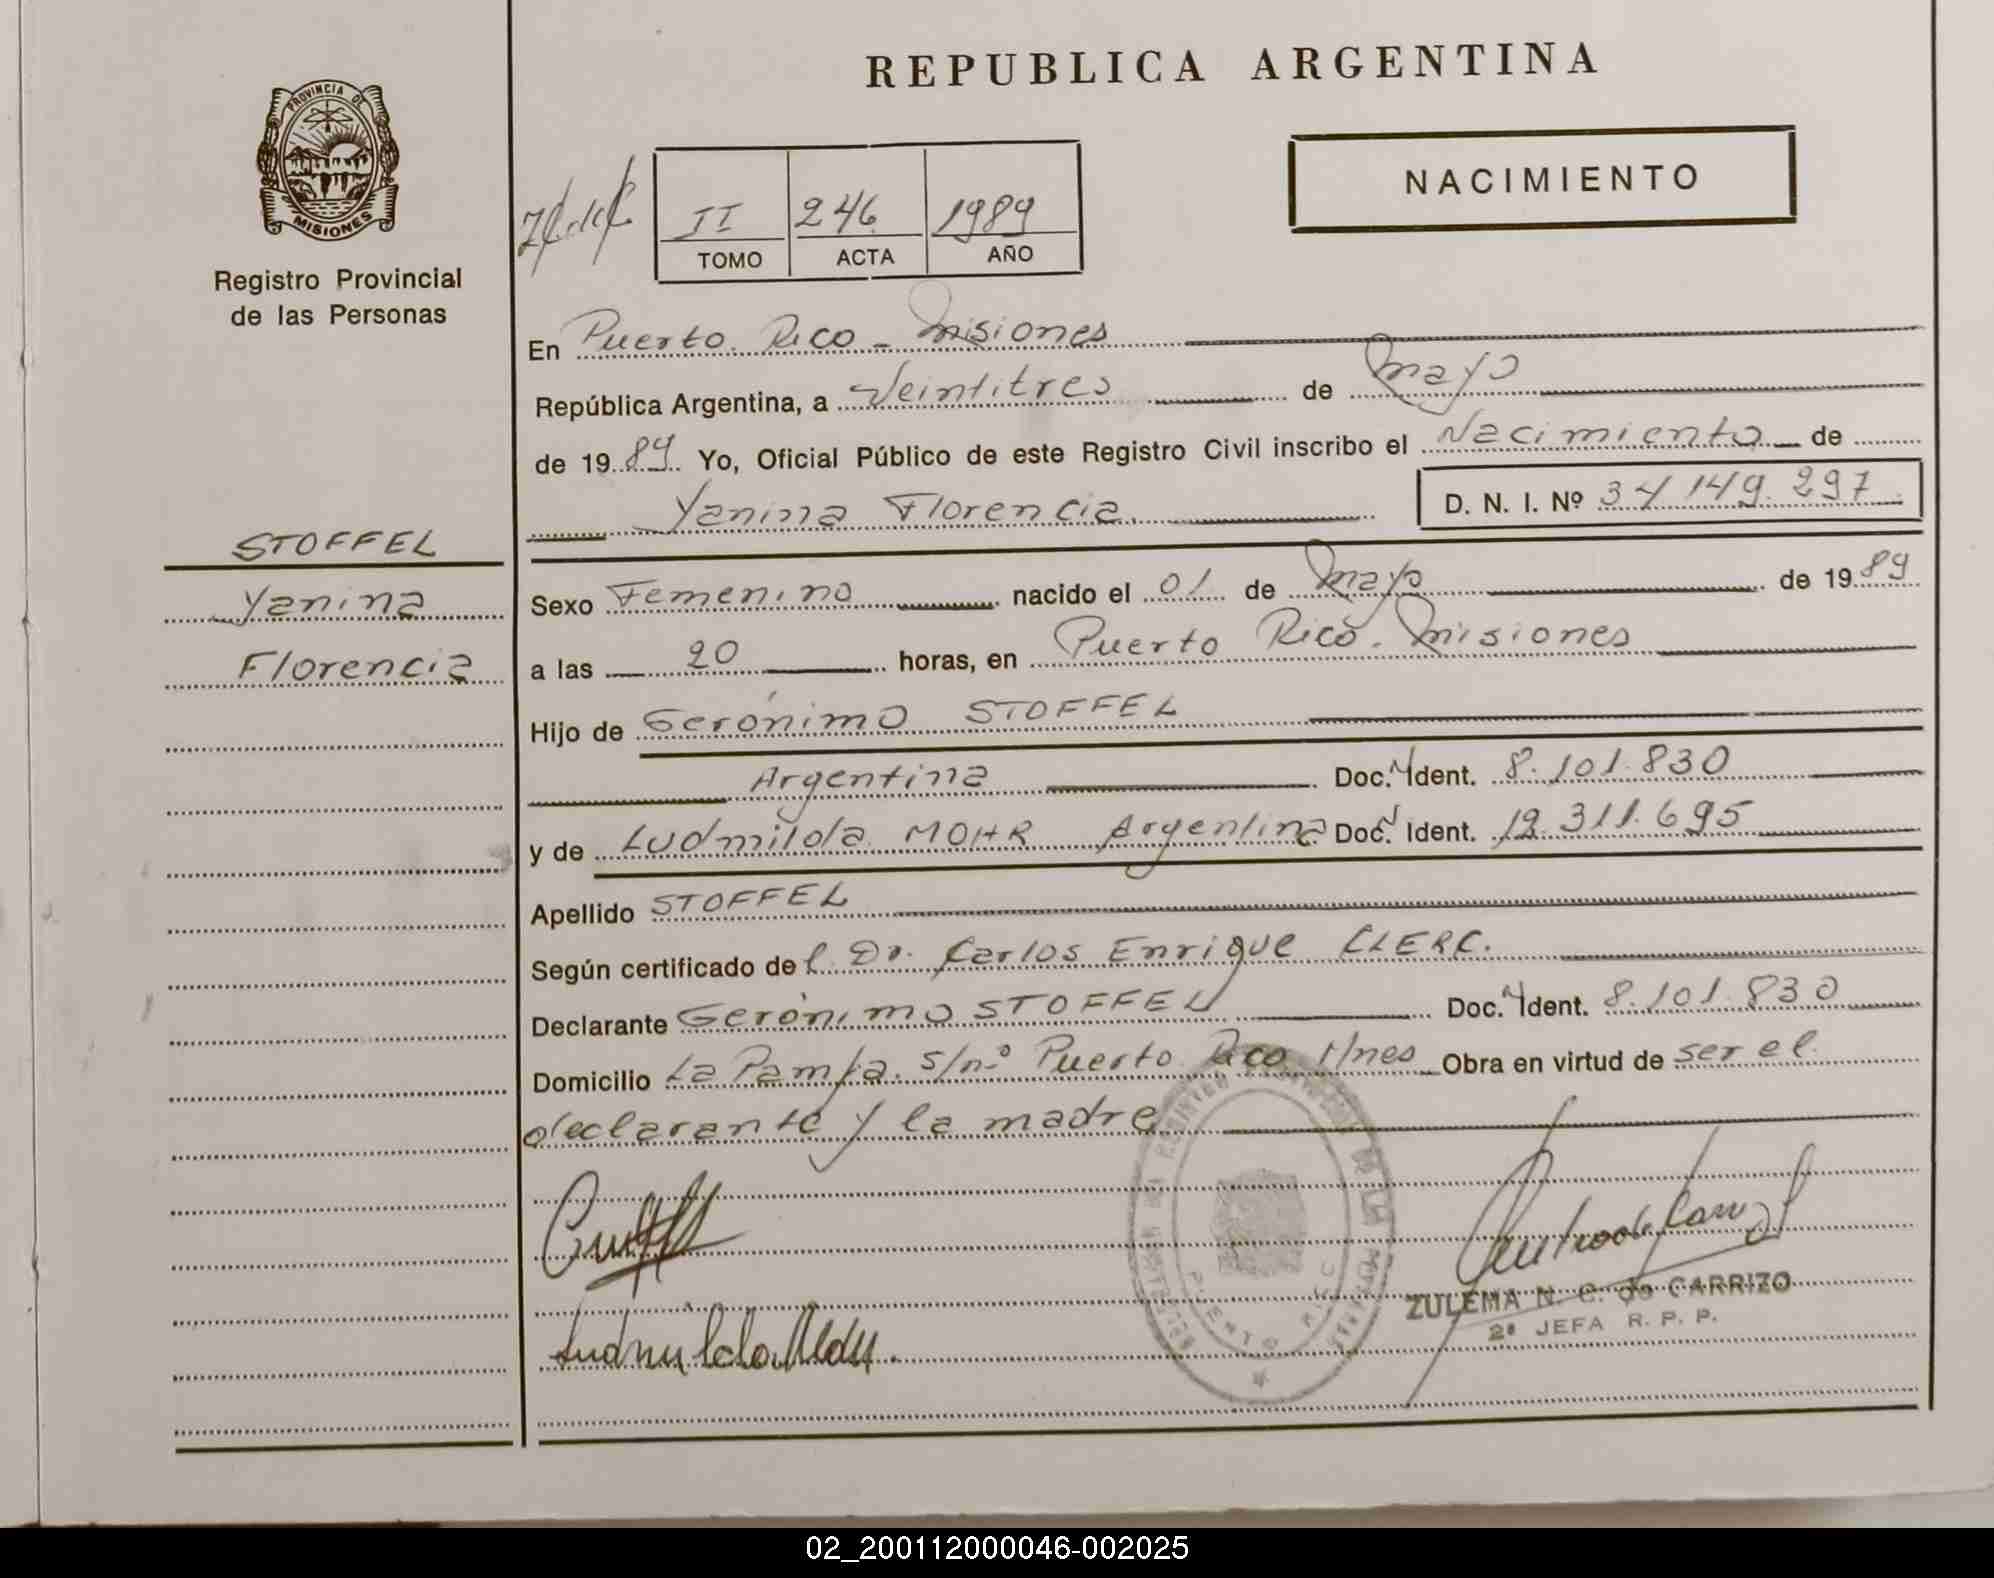 REPUBLICA ARGENTINA
PROVINCIA DE
MISIONES
Registro Provincial
de las Personas
NACIMIENTO
II 246 1989
TOMO ACTA AÑO
En Puerto Rico - Misiones
República Argentina, a Veintitres de Mayo
de 1989 Yo, Oficial Público de este Registro Civil inscribo el Nacimiento de
Yanina Florencia D. N. I. Nº 34.149.297
STOFFEL
Yanina
Florencia
Sexo Femenino nacido el 01 de Mayo de 1989
a las 20 horas, en Puerto Rico. Misiones
Hijo de Gerónimo STOFFEL
Argentina Doc. Ident. 8.101.830
y de Ludmilda MOHR Argentina Doc. Ident. 12.311.695
Apellido STOFFEL
Según certificado del Dr. Carlos Enrique CLERC.
Declarante Gerónimo STOFFEL Doc. Ident. 8.101.830
Domicilio La Pampa s/nº Puerto Rico Mnes Obra en virtud de ser el
declarante y la madre
PUERTO RICO
ZULEMA N. C. de CARRIZO
2ª JEFA R. P. P.
02_200112000046-002025